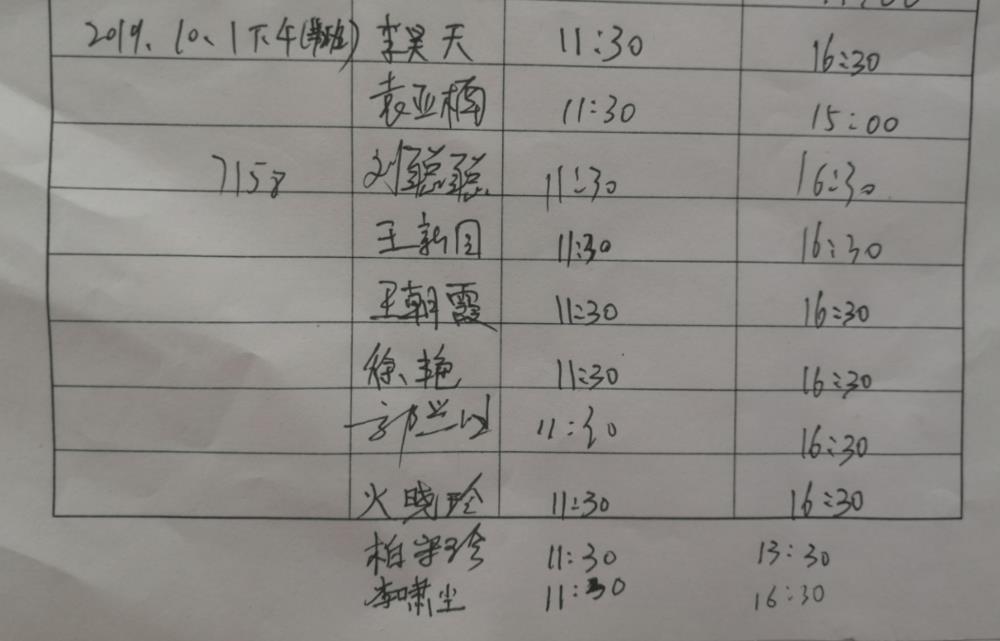 2019.10.1下午(替班) 李昊天 11:30 16:30
袁亚楠 11:30 15:00
7158 刘聪聪 11:30 16:30
王新国 11:30 16:30
王朝霞 11:30 16:30
徐艳 11:30 16:30
郭兰 11:30 16:30
火晓玲 11:30 16:30
柏 珍 11:30 13:30
李啸尘 11:30 16:30